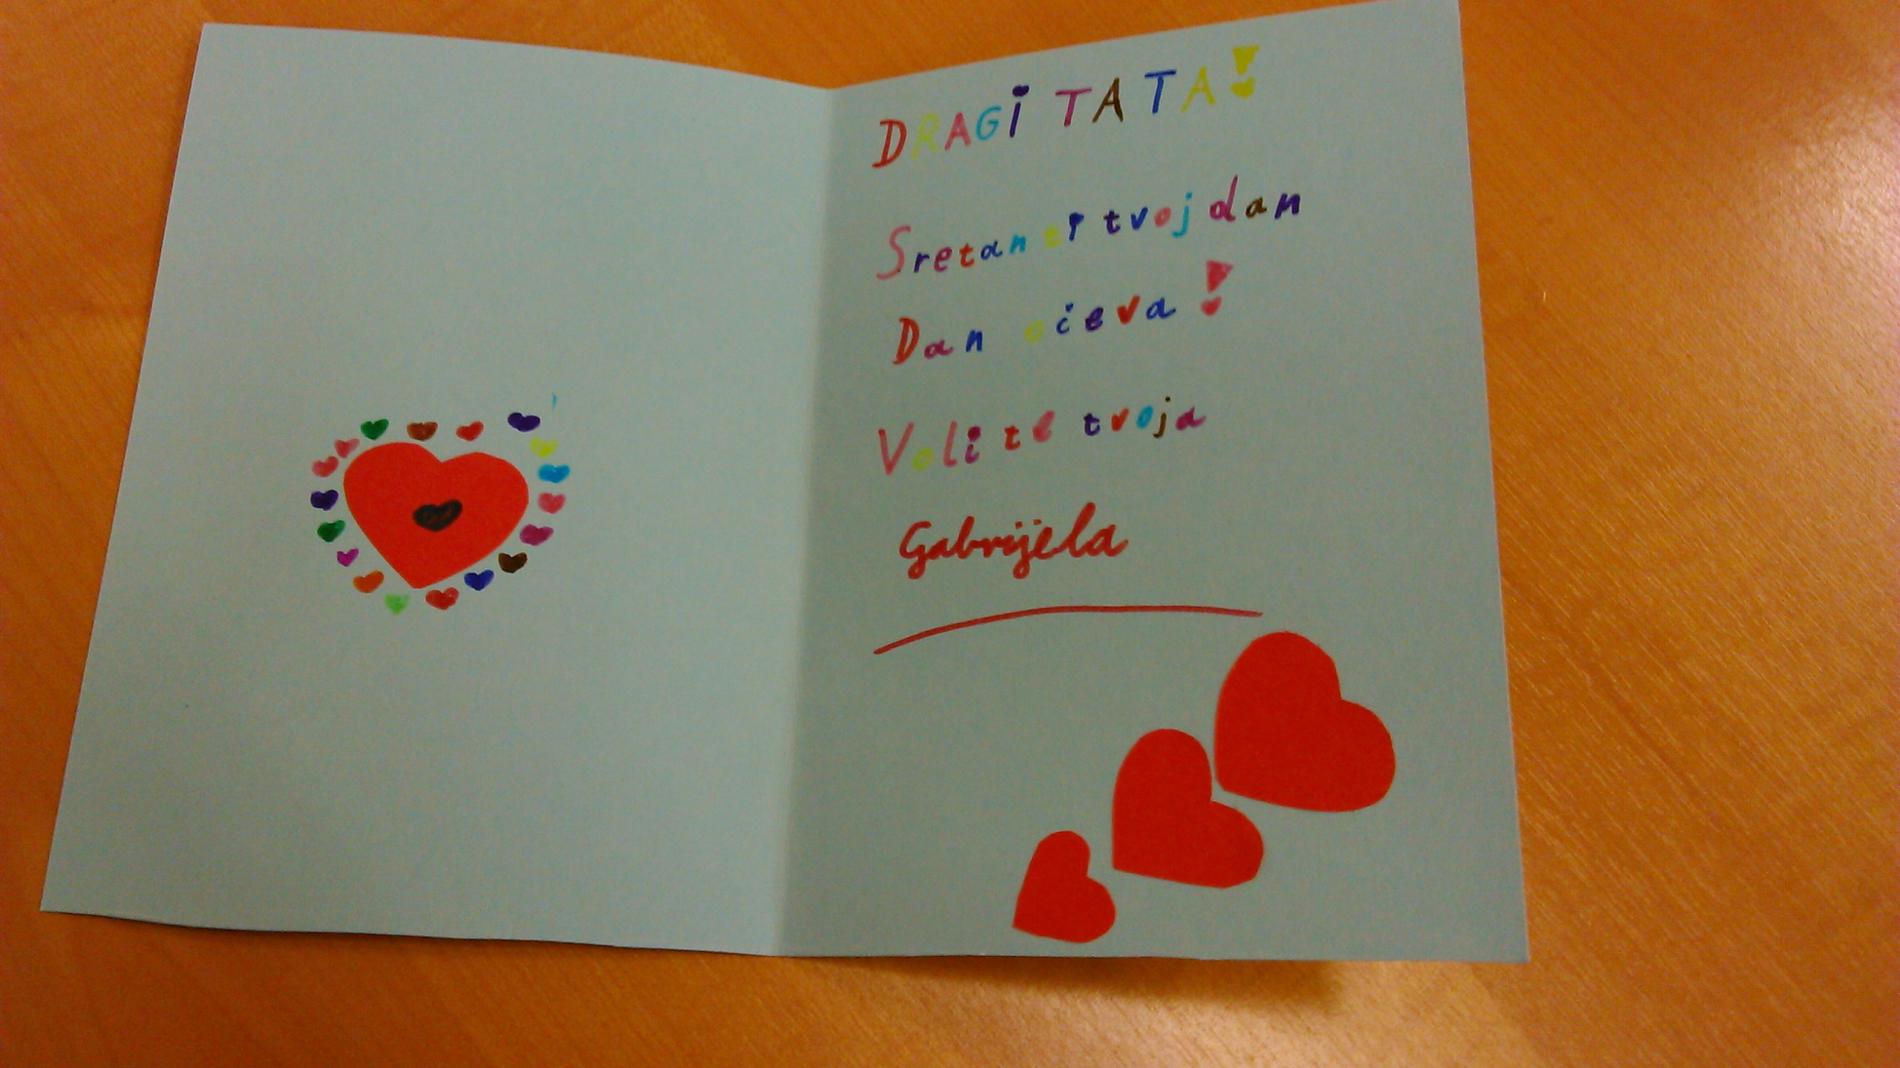 DRAGI TATA!
Sretan ti tvoj dan
Dan očeva!
Voli te tvoja
Gabrijela